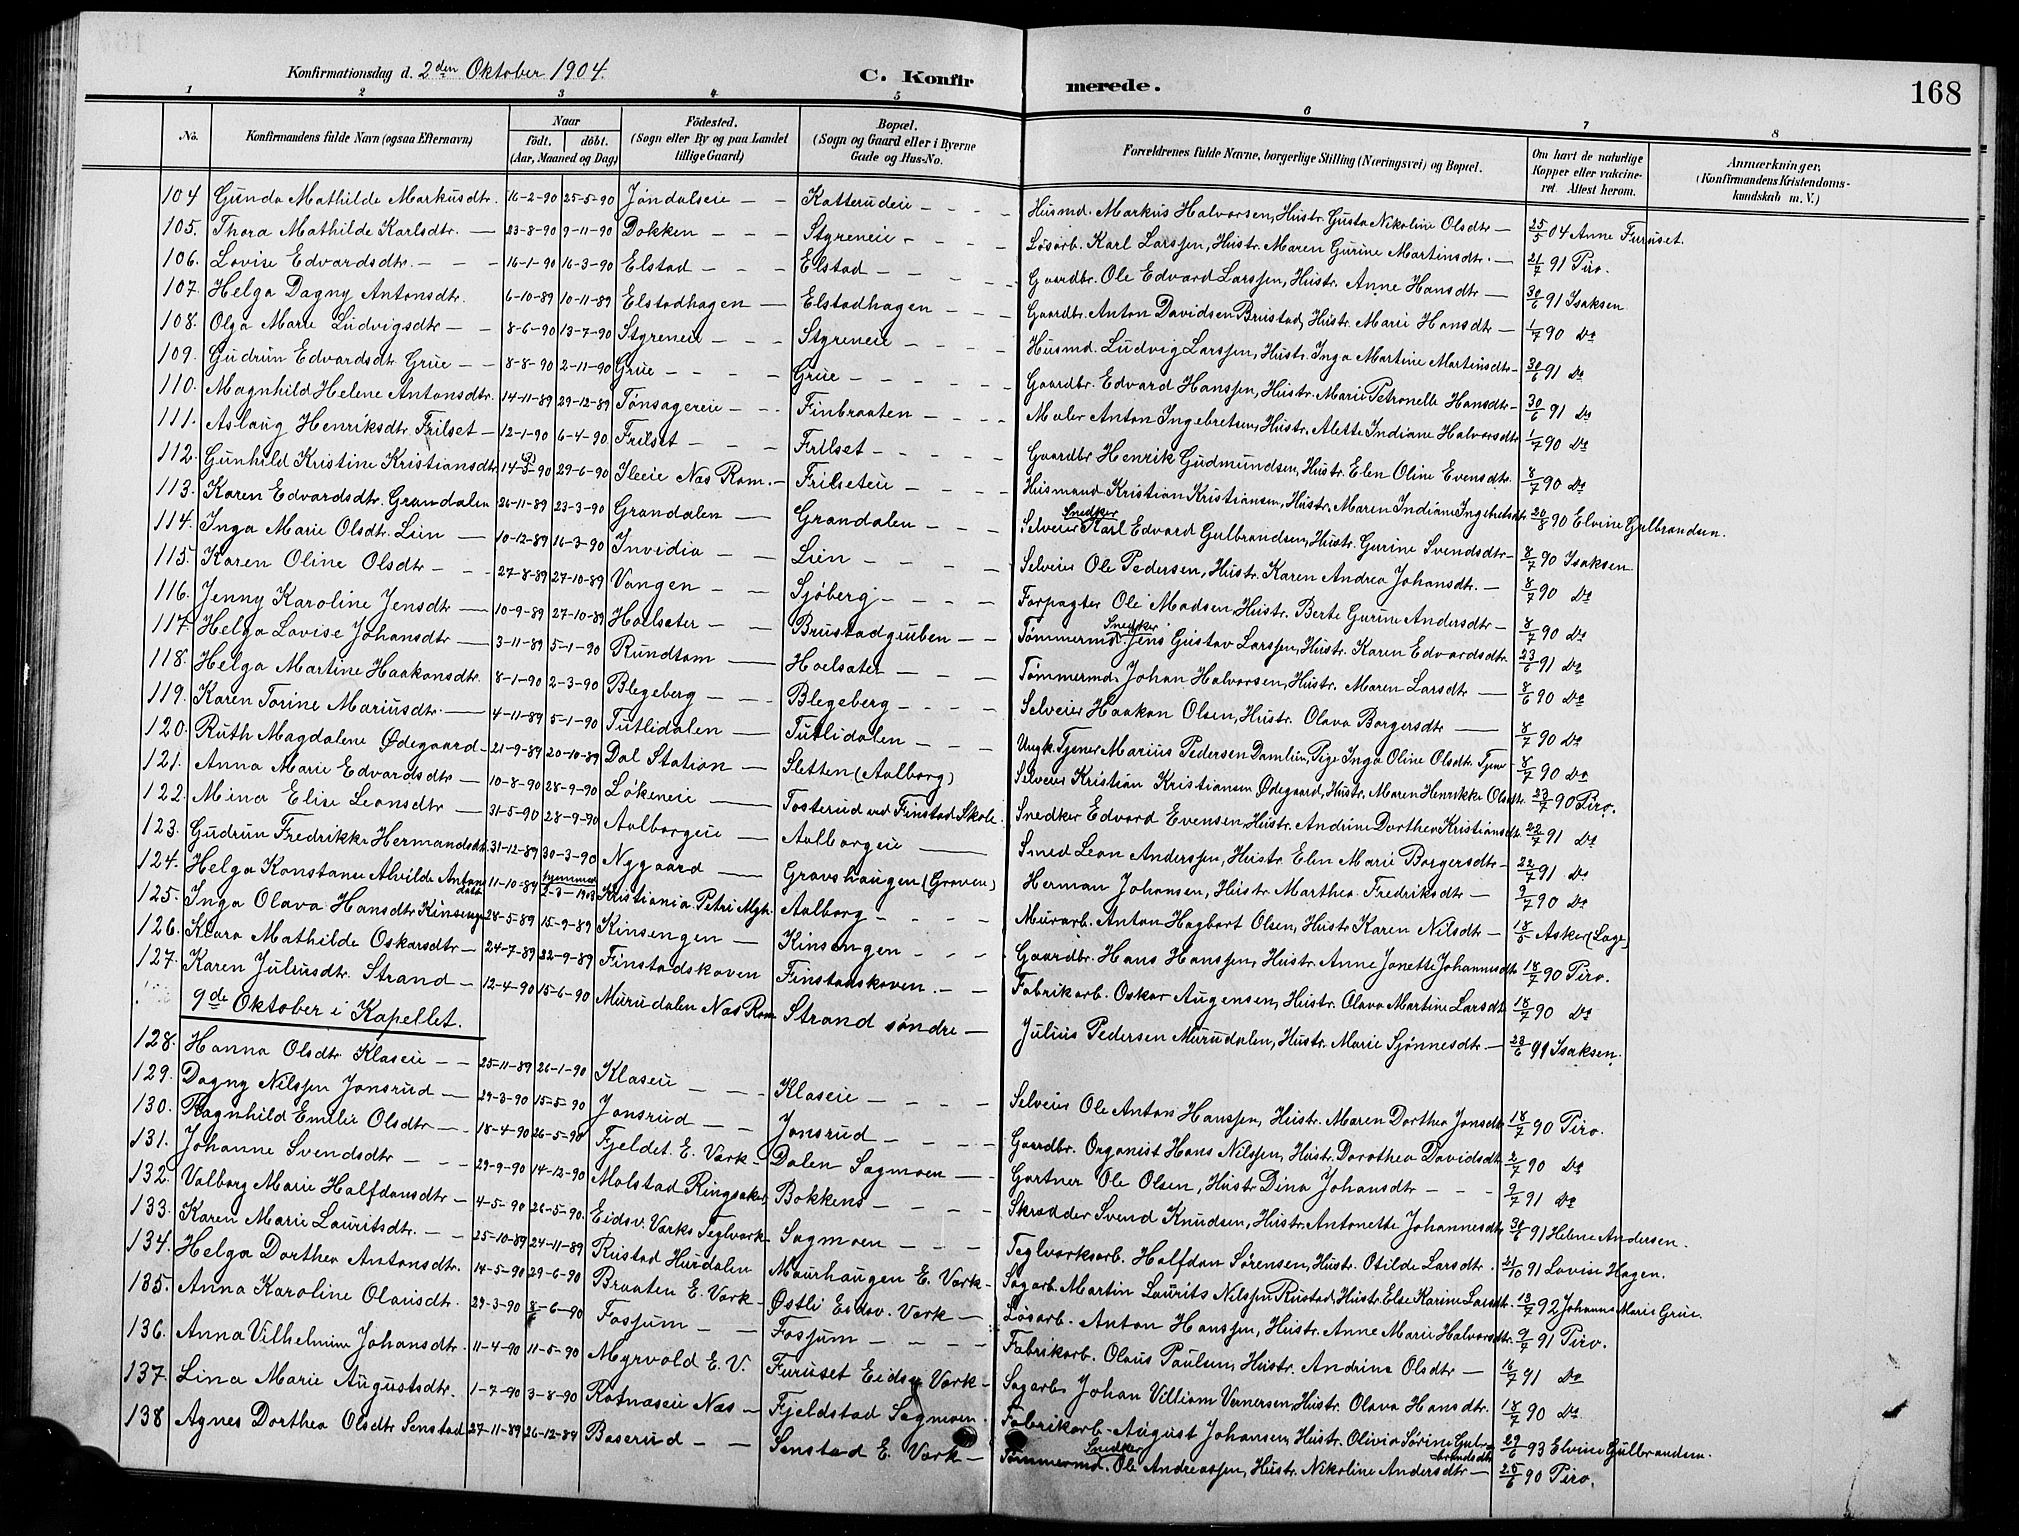 Konfirmationsdag d. 2den Oktober 1904. C. Konfirmerede. 168
1 2 3 4 5 6 7 8
No. Konfirmandens fulde Navn (ogsaa Efternavn) Naar født. døbt. (Aar, Maaned og Dag) Fødested. (Sogn eller By og paa Landet tillige Gaard) Bopæl. (Sogn og Gaard eller i Byerne Gade og Hus-No. Forældrenes fulde Navne, borgerlige Stilling (Næringsvei) og Bopæl. Om havt de naturlige Kopper eller vaccineret. Attest herom. Anmærkninger. (Konfirmandens Kristendomskundskab m. V.)
104 Gunda Mathilde Markusdtr. 16-2-90 25-5-90 Jøndalseie Katterudeie Husmd. Markus Halvorsen, Hustr. Gusta Nikoline Olsdtr 25/5 04 Anne Furuset.
105. Thora Mathilde Karlsdtr. 23-8-90 9-11-90 Dokken Styreneie Løsarb. Karl Larssen, Hustr. Maren Gurine Martinsdtr. 21/7 91 Piro.
106. Lovise Edvardsdtr. 16-1-90 16-3-90 Elstad Elstad Gaardbr. Ole Edvard Larssen, Hustr. Anne Hansdtr 30/6 91 Isaksen
107. Helga Dagny Antonsdtr. 6-10-89 10-11-89 Elstadhagen Elstadhagen Gaardbr. Anton Davidsen Brustad, Hustr. Marie Hansdtr 1/7 90 Do
108. Olga Marie Ludvigsdtr 8-6-90 13-7-90 Styreneie Styreneie Husmd. Ludvig Larssen, Hustr. Inga Martine Martinsdtr 30/6 91 Do
109. Gudrun Edvardsdtr Grue 8-8-90 2-11-90 Grue Grue Gaardbr. Edvard Hanssen, Hustr. Marie Petronelle Hansdtr 30/6 91 Do
110. Magnhild Helene Antonsdtr. 14-11-89 29-12-89 Tønsagereie Finbraaten Maler Anton Ingebretsen, Hustr. Alette Indiane Halvorsdtr 1/7 90 Do
111. Aslaug Henriksdtr Frilset 12-1-90 6-4-90 Frilset Frilset Gaardbr Henrik Gudmundsen, Hustr. Elen Oline Evensdtr. 8/7 90 Do
112. Gunhild Kristine Kristiansdtr 29-6-90 Ileie Nas Rom. Frilseteie Husmand Kristian Kristiansen, Hustr. Maren Indiane Ingebretsdtr 20/8 90 Elvine Gulbrandsen.
113. Karen Edvardsdtr. Grandalen 26-11-89 23-3-90 Grandalen Grandalen Selveier Snedker Karl Edvard Gulbrandsen, Hustr. Gurine Svendsdtr 8/7 90 Isaksen
114. Inga Marie Olsdtr. Lien 10-12-89 16-3-90 Invidia Lien Selveier Ole Pedersen, Hustr. Karen Andrea Johansdtr. 8/7 90 Do
115. Karen Oline Olsdtr 27-8-89 27-10-89 Vangen Sjøberg Forpagter Ole Madsen, Hustr. Berte Gurine Andersdtr 8/7 90 Do
116. Jenny Karoline Jensdtr 10-9-89 27-10-89 Hoelseter Brustadgruben Tømmermd. Snedker Jens Gustav Larssen, Hustr. Karen Edvardsdtr 23/6 91 Do
117. Helga Lovise Johansdtr 3-11-89 5-1-90 Rundtom Hoelsater Tømmermd. Johan Halvorsen, Hustr. Maren Larsdtr 8/6 90 Do
118. Helga Martine Haakonsdtr. 8-1-90 2-3-90 Blegeberg Blegeberg Selveier Haakon Olsen, Hustr. Olava Borgersdtr 8/7 90 Do
119. Karen Torine Mariusdtr. 4-11-89 5-1-90 Tutlidalen Tutlidalen Ungk. Tjener Marius Pedersen Damlien, Pige Inga Oline Olsdtr. Tjen 8/7 90 Do
120. Ruth Magdalene Ødegaard 21-9-89 20-10-89 Dal Station Sletten (Aalborg) Selveier Kristian Kristiansen Ødegaard, Hustr. Maren Henrikke Olsdtr. 23/7 90 Piro.
121. Anna Marie Edvardsdtr 10-8-90 28-9-90 Løkeneie Tosterud ved Finstad Skole. Snedker Edvard Evensen, Hustr. Andrine Dorthea Kristiansdtr. 22/7 91 Do
122. Mina Elise Leonsdtr 31-5-90 28-9-90 Aalborgeie Aalborgeie Smed Leon Anderssen, Hustr. Elen Marie Borgersdtr 22/7 91 Do
123. Gudrun Fredrikke Hermandsdtr. 31-12-89 30-3-90 Nygaard Gravshaugen (Graven) Herman Johansen, Hustr. Marthea Fredriksdtr 9/7 90 Do
124. Helga Konstanse Alvilde Antonsdatr 11-10-89 hjemme Kristiania Petri Mgh. Aalborg Murarb. Anton Hagbart Olsen, Hustr Karen Nilsdtr 18/5 Asker (Lage)
125. Inga Olava Hansdtr Kinsengen 28-5-89 15-9-89 Kinsengen Kinsengen Gaardbr. Hans Hanssen, Hustr. Anne Jonette Johannesdtr 18/7 90 Piro.
126. Klara Mathilde Oskarsdtr 24-7-89 22-9-89 Finstadskoven Finstadskoven. Fabrikarb. Oskar Augensen, Hustr. Olava Martine Larsdtr 18/7 90 Do
127. Karen Juliusdtr. Strand 12-4-90 15-6-90 Murudalen Nas Rom Strand søndre Julius Pedersen Murudalen, Hustr. Marie Sjønnesdtr. 23/6 91 Isaksen.
9de Oktober i Kapellet.
128. Hanna Olsdtr Klaseie 25-11-89 26-1-90 Klaseie Klaseie Selveier Ole Anton Hanssen, Hustr. Maren Dorthea Jonsdtr 18/7 90 Piro.
129. Dagny Nilssen Jonsrud 29-3-90 15-5-90 Jonsrud Jonsrud Gaardbr. Organist Hans Nilssen, Hustr. Dorothea Davidsdtr 2/7 90 Do
130. Ragnhild Emilie Olsdtr 18-4-90 26-5-90 Fjeldet E. Værk Dalen Sagmoen Gartner Ole Olsen, Hustr Dina Johansdtr 9/7 91 Do
131. Johanne Svendsdtr 29-9-90 14-12-90 Molstad Ringsaker Bakkens Skrædder Svend Knudsen, Hustr. Antonette Johannesdtr 30/6 91 Helene Andersen.
132. Valborg Marie Halfdansdtr 4-5-90 26-5-90. Eidsv. Værks Teglværk Sagmoen Teglværksarb. Halfdan Sørensen, Hustr. Otilde Larsdtr. 21/10 91 Lovise Hagen.
133. Karen Marie Lauritsdtr. 25-10-89 24-11-89 Rustad Hurdalen Maurhaugen E. Værk Sagarb. Martin Laurits Nilssen Rustad, Hustr. Else Karine Larsdtr. 13/7 92 Johanne Marie Grue.
134. Helga Dorthea Antonsdtr. 14-5-90 29-6-90 Braaten E. Værk Østli Eidsv. Værk Løsarb. Anton Hanssen, Hustr. Anne Marie Halvorsdtr. 9/7 91 Piro.
135. Anna Karoline Olausdtr. 29-3-90 8-6-90 Fossum Fossum Fabrikarb. Olaus Paulsen, Hustr. Andrine Olsdtr 16/7 91 Do
136. Anna Vilhelmine Johansdtr. 11-4-90 11-5-90 Myrvold E. V. Furuset Eidsv Værk Sagarb. Johan Villiam Vernersen, Hustr. Olava Hansdtr. 18/7 90 Do.
137. Lina Marie Augustsdtr. 1-7-90 3-8-90 Ratnaseie Nas Fjeldstad Sagmoen Fabrikarb. August Johansen, Hustr. Olivia Sørine Gulbrandsdtr 29/6 93 Elvine Gulbrandsen.
138 Agnes Dorthea Olsdtr Senstad 27-11-89 26-12-89 Baserud Senstad E. Værk Tømmermd. Snedker Ole Andreassen, Hustr. Nikoline Andersdtr 25/6 90 Piro.